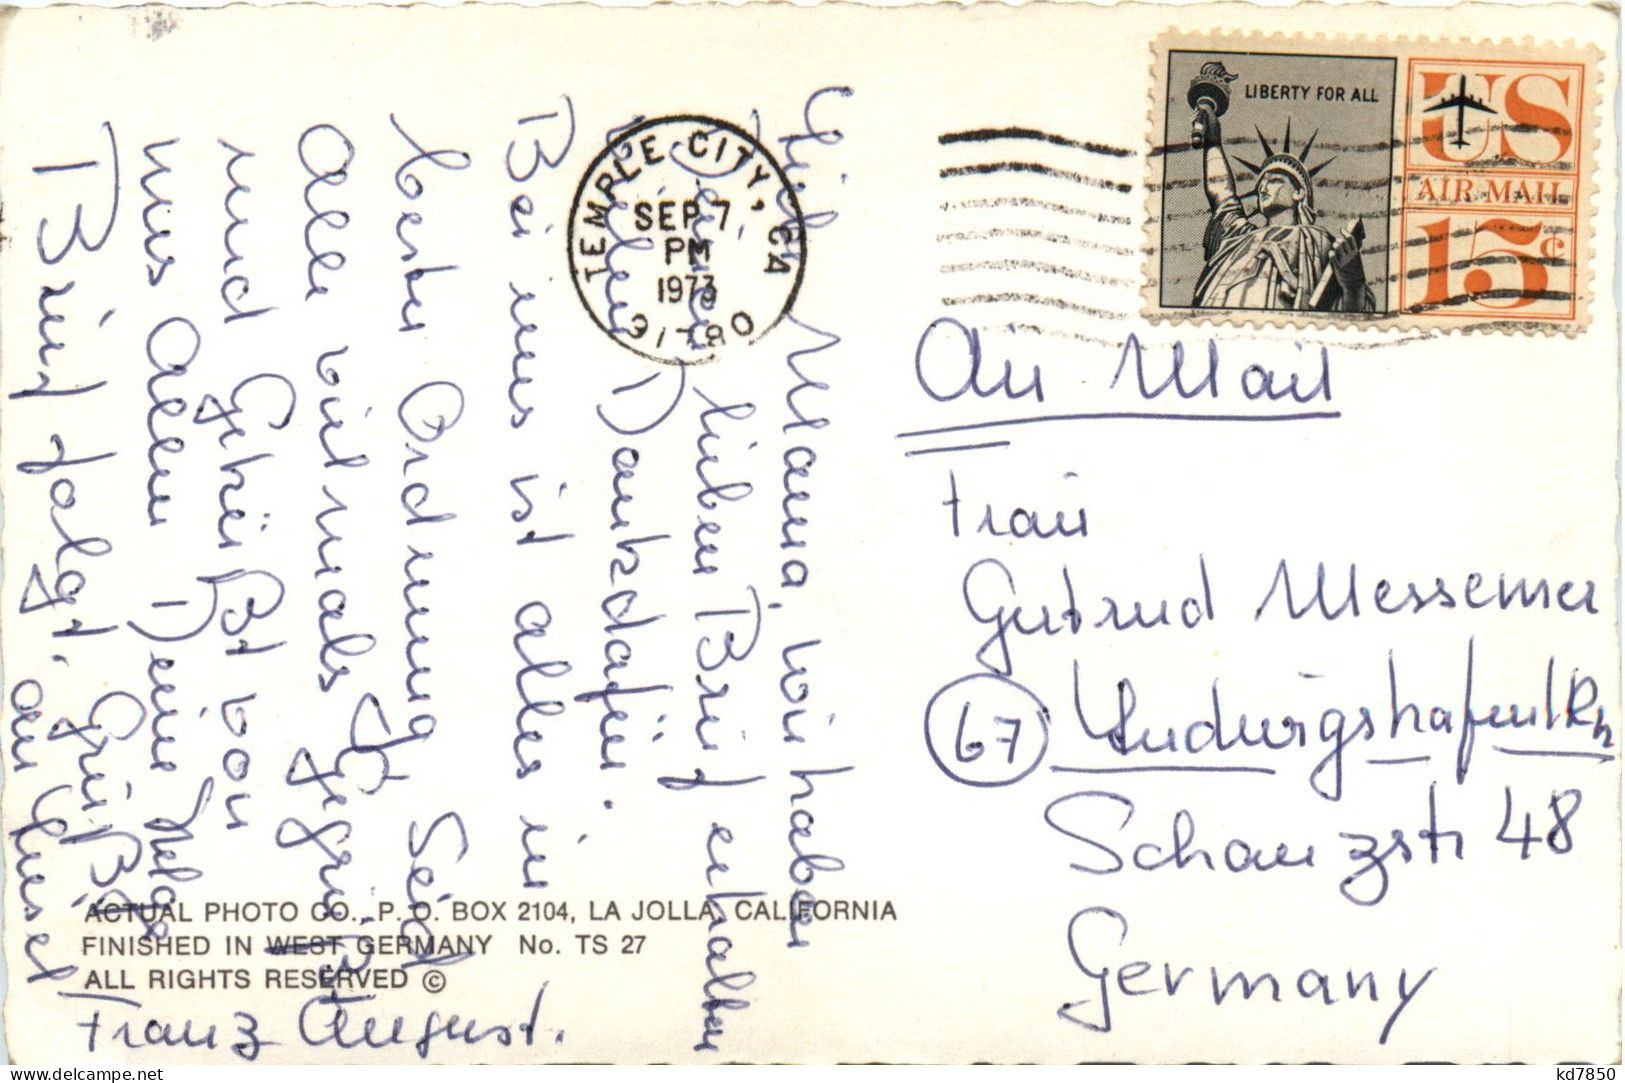 LIBERTY FOR ALL
US
AIR MAIL
15c
TEMPLE CITY, CA
SEP 7,
PM
1973
91780
Air Mail
Frau
Gertrud Messemer
67 Ludwigshafen/Rh
Schanzstr 48
Germany
Liebe Mama, wir haben
Deinen lieben Brief erhalten
vielen Dank dafür.
Bei uns ist alles in
bester Ordnung. Seid
Alle vielmals gegrüßt
und Geküßt von
uns Allen Deine Helga
Brief folgt. Gruß
an Liesel
Franz August.
ACTUAL PHOTO CO., P. O. BOX 2104, LA JOLLA, CALIFORNIA
FINISHED IN WEST GERMANY No. TS 27
ALL RIGHTS RESERVED ©
kd7850